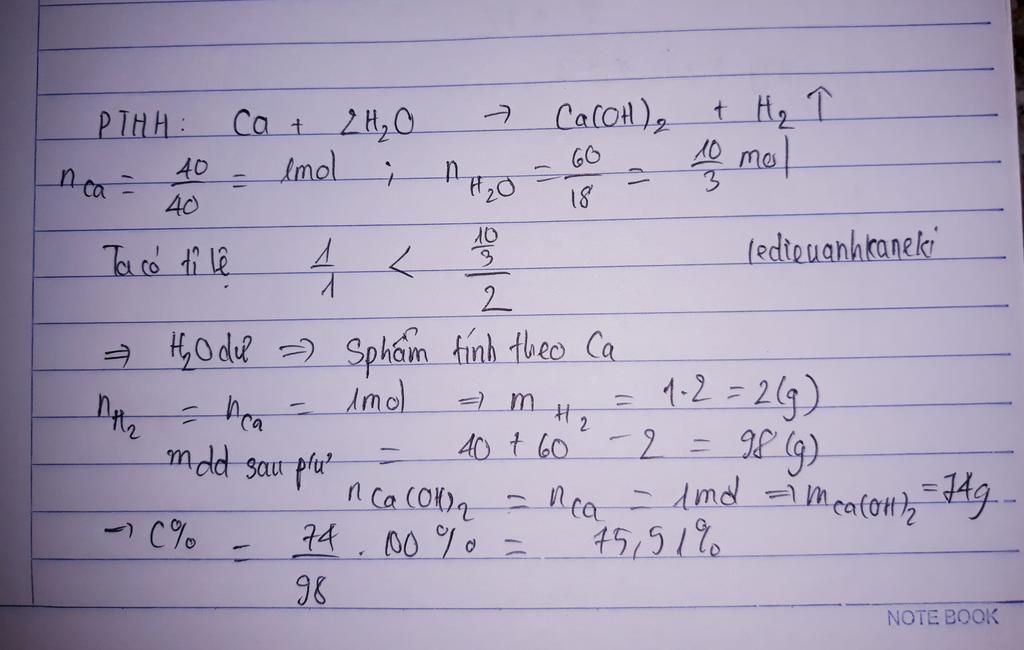 PTHH: Ca + 2H₂O → Ca(OH)₂ + H₂ ↑
n Ca = 40/40 = 1mol ; n H₂O = 60/18 = 10/3 mol
Ta có tỉ lệ 1/1 < (10/3)/2 ledieuanhkaneki
⇒ H₂O dư ⇒ Sphẩm tính theo Ca
n H₂ = n Ca = 1mol ⇒ m H₂ = 1.2 = 2(g)
mdd sau pứ = 40 + 60 - 2 = 98(g)
n Ca(OH)₂ = n Ca = 1mol ⇒ m Ca(OH)₂ = 74g
→ C% = 74/98 . 100% = 75,51%
NOTE BOOK